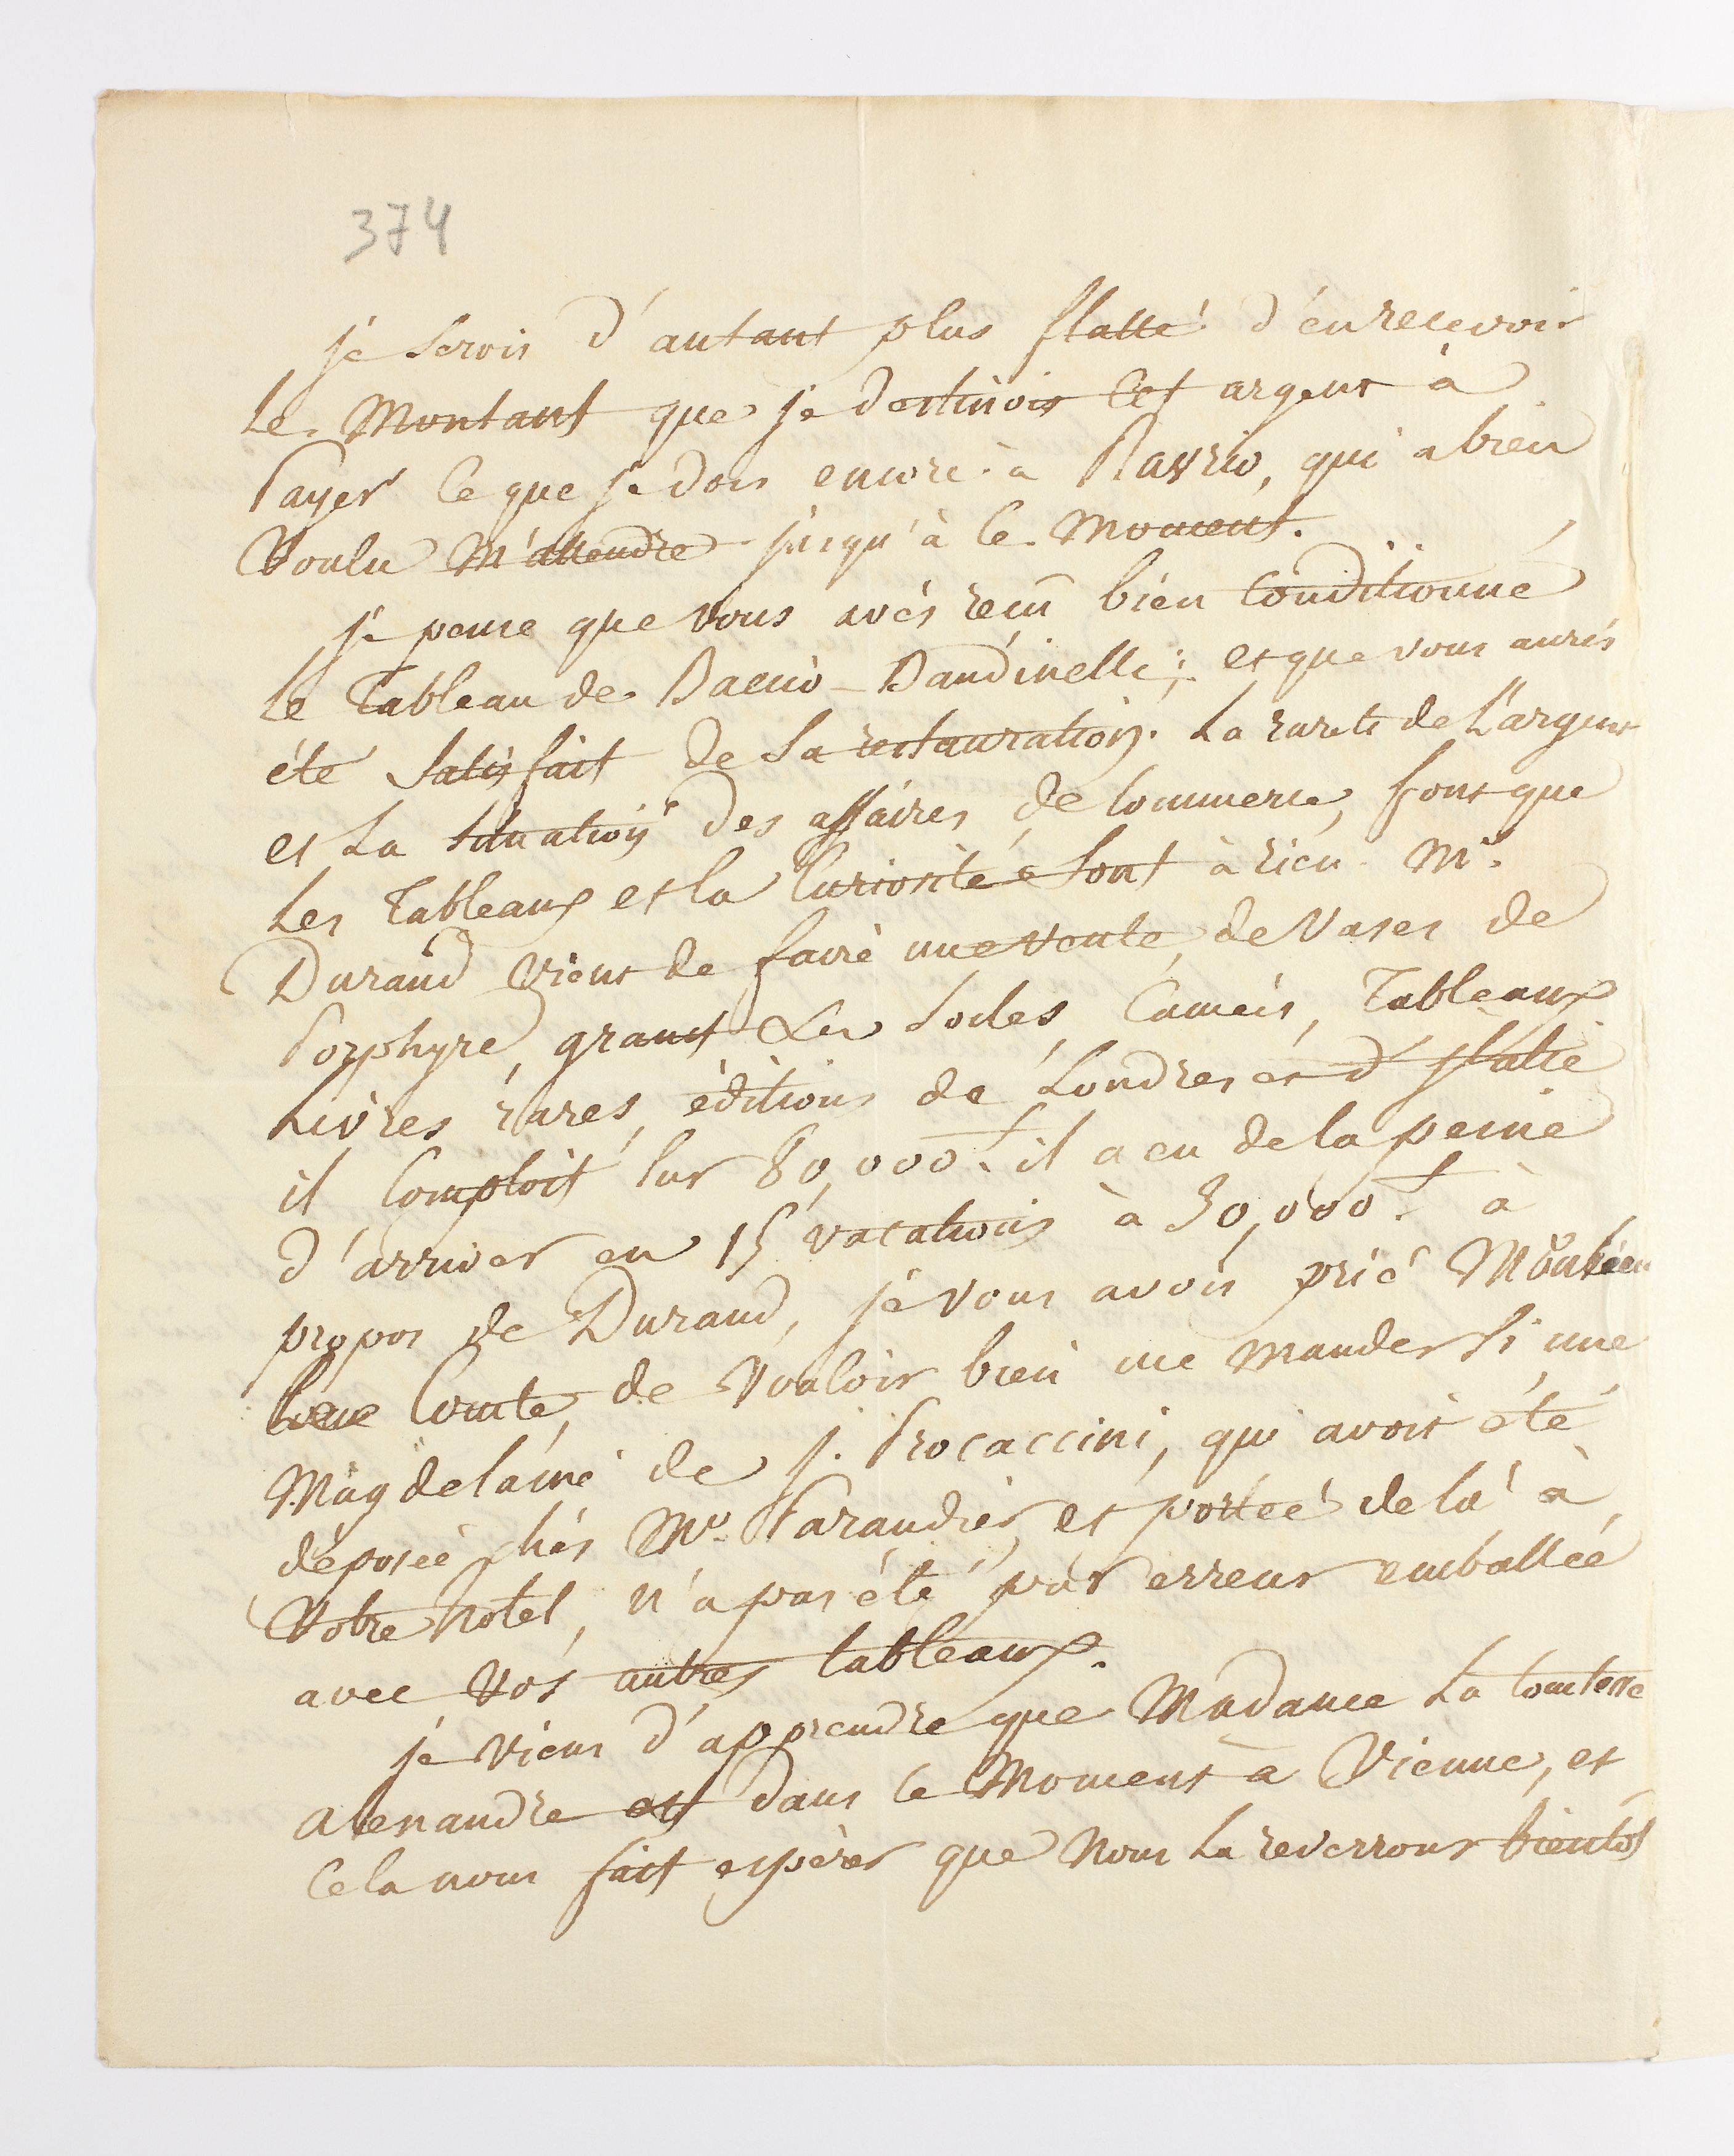 374
je serois d'autant plus flatté d'en recevoir
Le Montant que je destinois cet argent à
Payer ce que je dois encore à Ravrio, qui a bien
Voulu M'attendre jusqu'à ce Moment.
je pense que vous avés recu bien Conditionné
Le Tableau de Baccio-Bandinelli; et que vous aurés
été satisfait de sa restauration. La rareté de L'argent
et La situation des affaires de Commerce, font que
Les Tableaux et la Curiosité sont à rien. Mr.
Durand vient de faire une vente, de Vases de
Porphyre, granit Socles, Camées, Tableaux
Livres rares, éditions de Londres et d'Italie
il Comptoit sur 80,000 f. il a eu de la peine
d'arriver en 15 vacations à 30,000 f. à
propos de Durand, je vous avois prié Monsieur
Le Comte, de Vouloir bien me mander si une
Magdelaine de J. Procaccini, qui avoit été
déposée chés Mr. Parandier, et portée de là à
Votre hotel, n'a pas été par erreur emballée
avec Vos autres tableaux.
je viens d'apprendre que Madame La Comtesse
Alexandre est dans ce Moment à Vienne, et
Cela nous fait espérer que Nous La reverrons bientôt